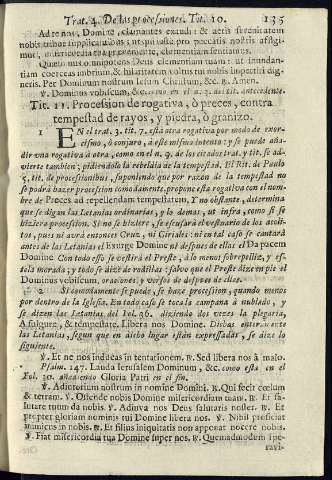 Trat. 4. De las processiones. Tit. 10. 135
Ad te nos, Domine, clamantes exaudi: & aeris serenitatem
nobis tribue supplicantibus: ut qui iuste pro peccatis nostris affligi-
mur, misericordia tua praeveniente, clementiam sentiamus.
Quaesumus omnipotens Deus clementiam tuam: ut inundan-
tiam coerceas imbrium, & hilaritatem vultus tui nobis impertiri dig-
neris. Per Dominum nostrum Iesum Christum, &c. ℟. Amen.
℣. Dominus vobiscum, &c. como en el n. 2. del tit. antecedente.
Tit. 11. Procession de rogativa, ò preces, contra
tempestad de rayos, y piedra, ò granizo.
1 EN el trat. 3. tit. 7. està otra rogativa por modo de exor-
cismo, ò conjuro, à este mismo intento: y se puede aña-
dir una rogativa à otra, como en el n. 9. de los citados trat. y tit. se ad-
vierte tambien; pidiendolo la rebeldia de la tempestad. El Rit. de Paulo
5. tit. de processionibus, suponiendo que por razon de la tempestad no
se podrà hazer procession comodamente, propone esta rogativa con el nom-
bre de Preces ad repellendam tempestatem. Y no obstante, determina
que se digan las Letanias ordinarias, y lo demas, ut infra, como si se
hiziera procession. Si no se hiziere, se escusarà el vestuario de los acoli-
tos, pues ni avrà entonces Cruz, ni Ciriales: ni en tal caso se cantarà
antes de las Letanias el Exurge Domine ni despues de ellas el Da pacem
Domine Con todo esso se vestirà el Preste, à lo menos sobrepelliz, y es-
tola morada; y todo se dize de rodillas: salvo que el Preste dize en pie el
Dominus vobiscum, oraciones y versos de despues de ellas.
2 Si comodamente se puede, se haze procession, quando menos
por dentro de la Iglesia. En todo caso se toca la campana à nublado, y
se dizen las Letanias del Fol. 96. diziendo dos vezes la plegaria,
A fulgure, & tempestate. Libera nos Domine. Dichas enteramente
las Letanias, segun que en dicho lugar estàn expressadas, se dize lo
siguiente.
℣. Et ne nos inducas in tentationem. ℟. Sed libera nos à malo.
Psalm. 147. Lauda Ierusalem Dominum, &c. como està en el
Fol. 20. añadiendo Gloria Patri en el fin.
℣. Adiutorium nostrum in nomine Domini. ℟. Qui fecit coelum
& terram. ℣. Ostende nobis Domine misericordiam tuam. ℟. Et sa-
lutare tuum da nobis. ℣. Adiuva nos Deus salutaris noster. ℟. Et
propter gloriam nominis tui Domine libera nos. ℣. Nihil proficiat
inimicus in nobis. ℟. Et filius iniquitatis non apponat nocere nobis.
℣. Fiat misericordia tua Domine super nos. ℟. Quemadmodum spe-
ravi-